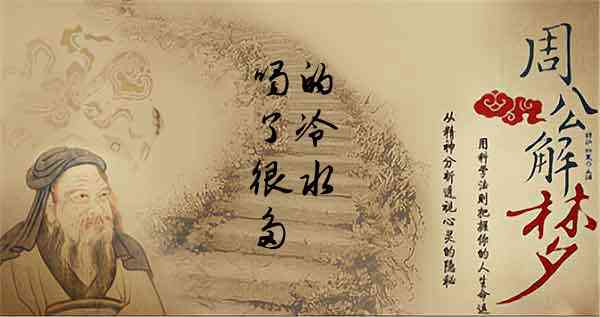 喝了很多
的冷水
周公解梦
从精神分析透视心灵的隐秘
用科学法则把握你的人生命运